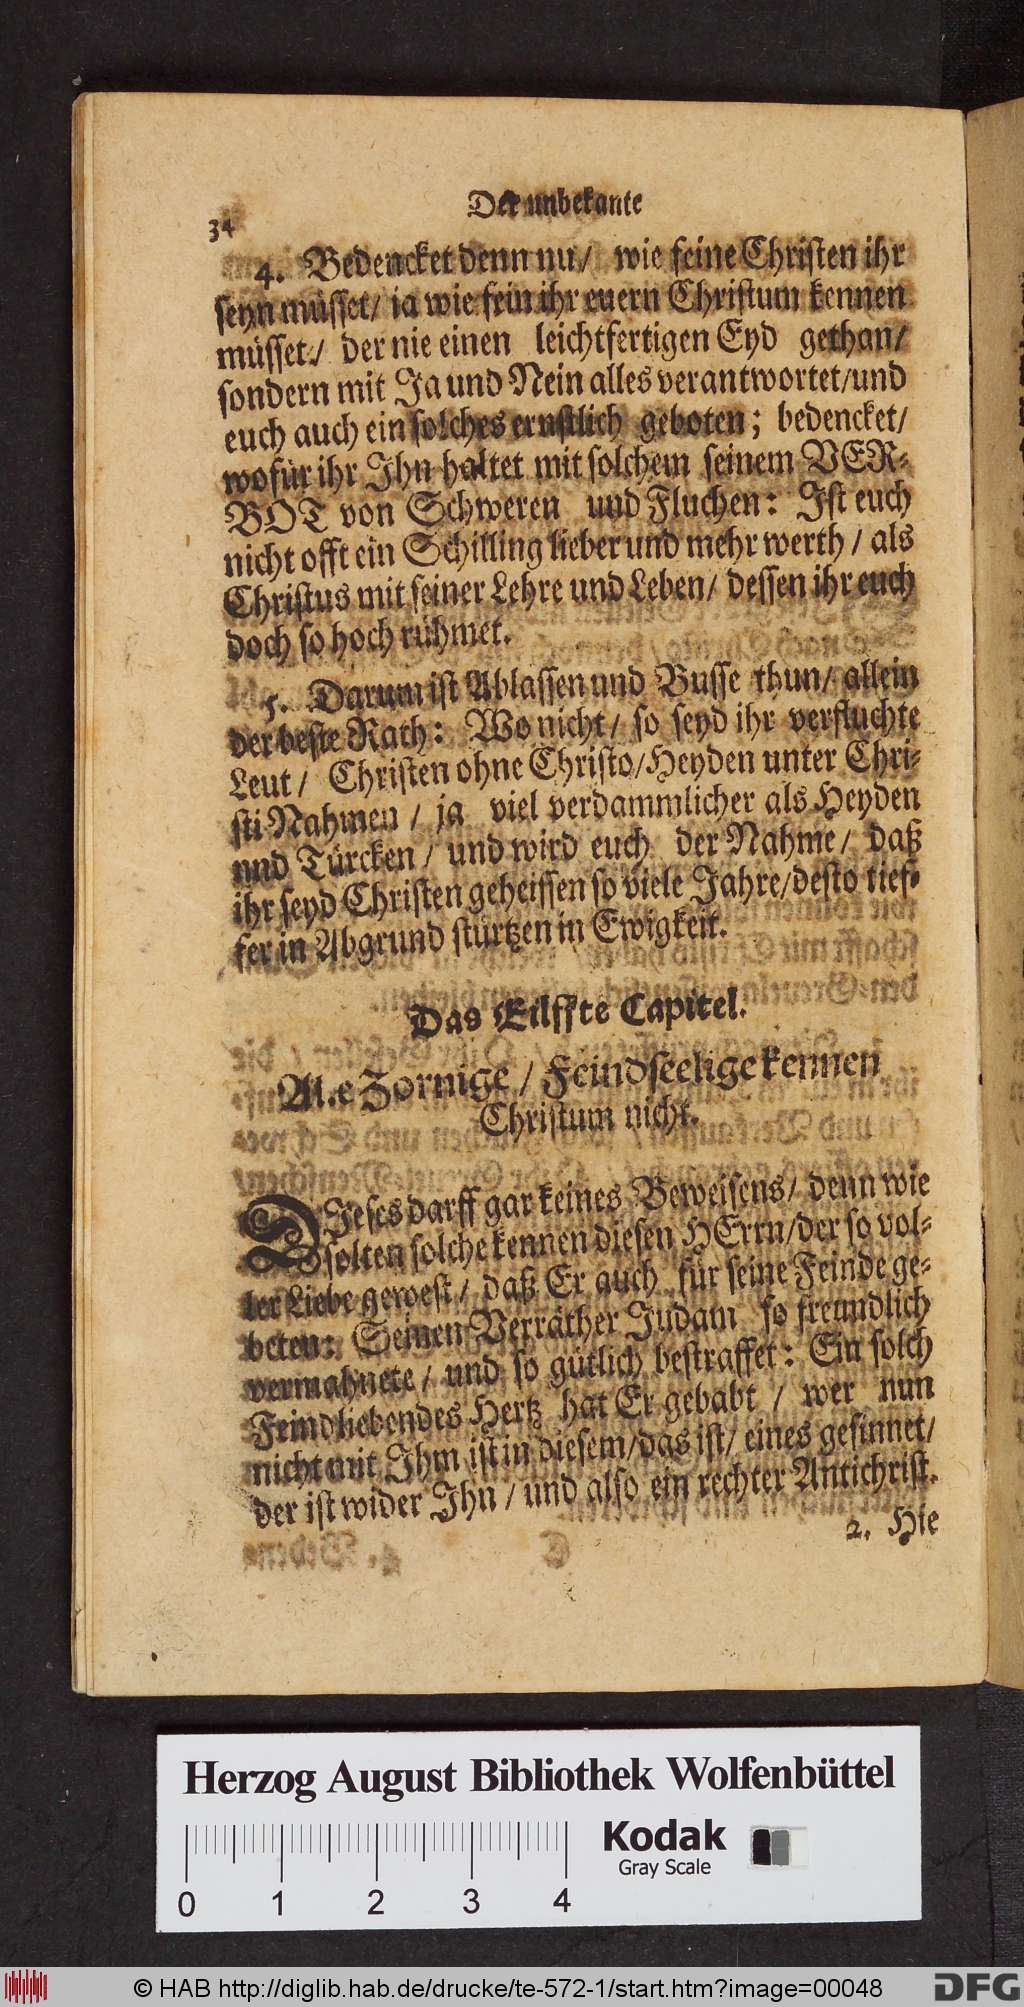 34
Der unbekante
4. Bedencket denn nu/ wie feine Christen ihr
seyn müsset/ ja wie fein ihr euern Christum kennen
müsset/ der nie einen leichtfertigen Eyd gethan/
sondern mit Ja und Nein alles verantwortet/und
euch auch ein solches ernstlich geboten; bedencket/
wofür ihr Ihn haltet mit solchem seinem VER-
BOT von Schweren und Fluchen: Ist euch
nicht offt ein Schilling lieber und mehr werth / als
Christus mit seiner Lehre und Leben/ dessen ihr euch
doch so hoch rühmet.
5. Darum ist Ablassen und Busse thun/ allein
der beste Rath: Wo nicht/ so seyd ihr verfluchte
Leut/ Christen ohne Christo/Heyden unter Chri-
sti Nahmen / ja viel verdammlicher als Heyden
und Türcken / und wird euch der Nahme/ daß
ihr seyd Christen geheissen so viele Jahre/desto tief-
fer in Abgrund stürtzen in Ewigkeit.
Das Eilffte Capitel.
Alle Zornige / Feindseelige kennen
Christum nicht.
DIeses darff gar keines Beweisens/ denn wie
solten solche kennen diesen HErrn/der so vol-
ler Liebe gewest/ daß Er auch für seine Feinde ge-
beten: Seinen Verräther Judam so freundlich
vermahnete/ und so gütlich bestraffet: Ein solch
Feindliebendes Hertz hat Er gebabt / wer nun
nicht mit Ihm ist in diesem/das ist/ eines gesinnet/
der ist wider Ihn / und also ein rechter Antichrist.
2. Hie
Herzog August Bibliothek Wolfenbüttel
Kodak
Gray Scale
0 1 2 3 4
© HAB http://diglib.hab.de/drucke/te-572-1/start.htm?image=00048
DFG